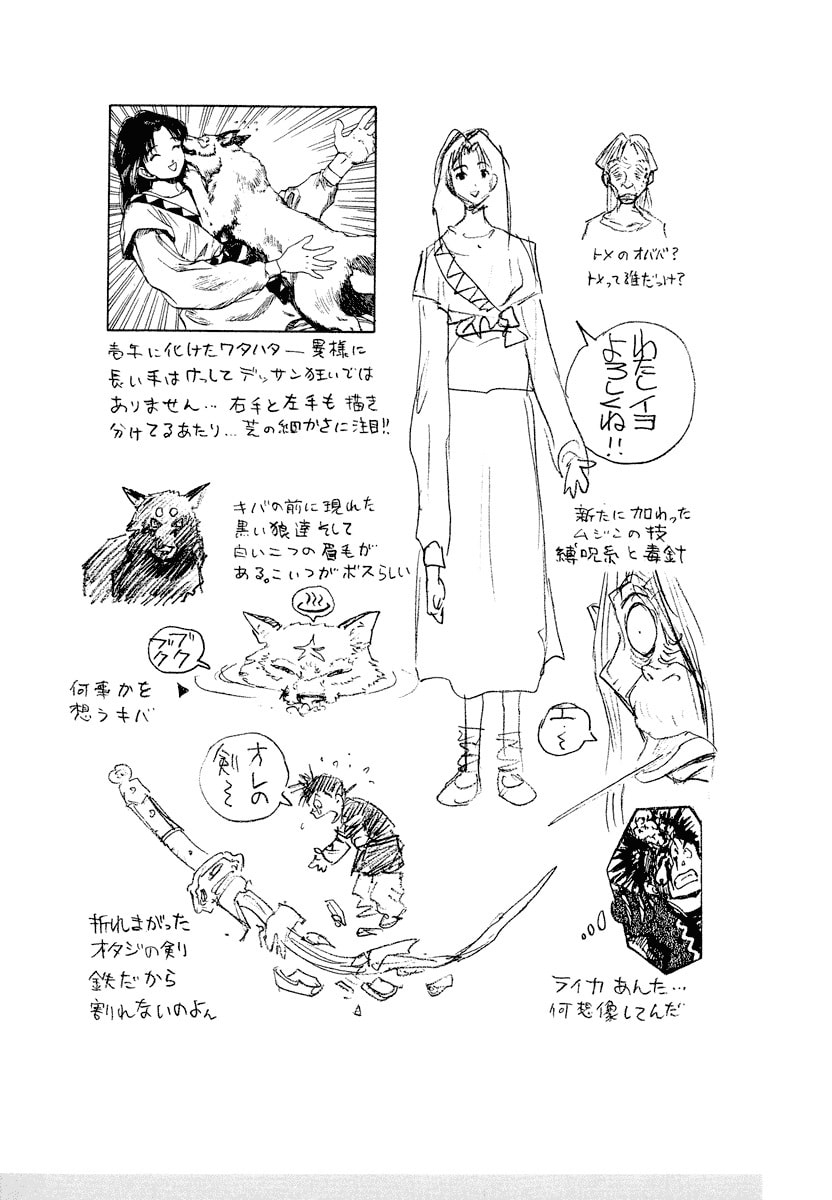 壱与に化けたワタハター異様に
長い手はけっしてデッサン狂いでは
ありません…右手と左手も描き
分けてるあたり…芸の細かさに注目!!
トメのオババ?
トメって誰だっけ?
わたしイヨ
よろしくね!!
キバの前に現れた
黒い狼達そして
白い二つの眉毛が
ある。こいつがボスらしい
新たに加わった
ムジンの技
縛呪糸と毒針
ブク
ブク
何事かを
想うキバ
エ〜
オレの
剣〜
折れまがった
オタジの剣
鉄だから
割れないのよん
ライカあんた…
何想像してんだ